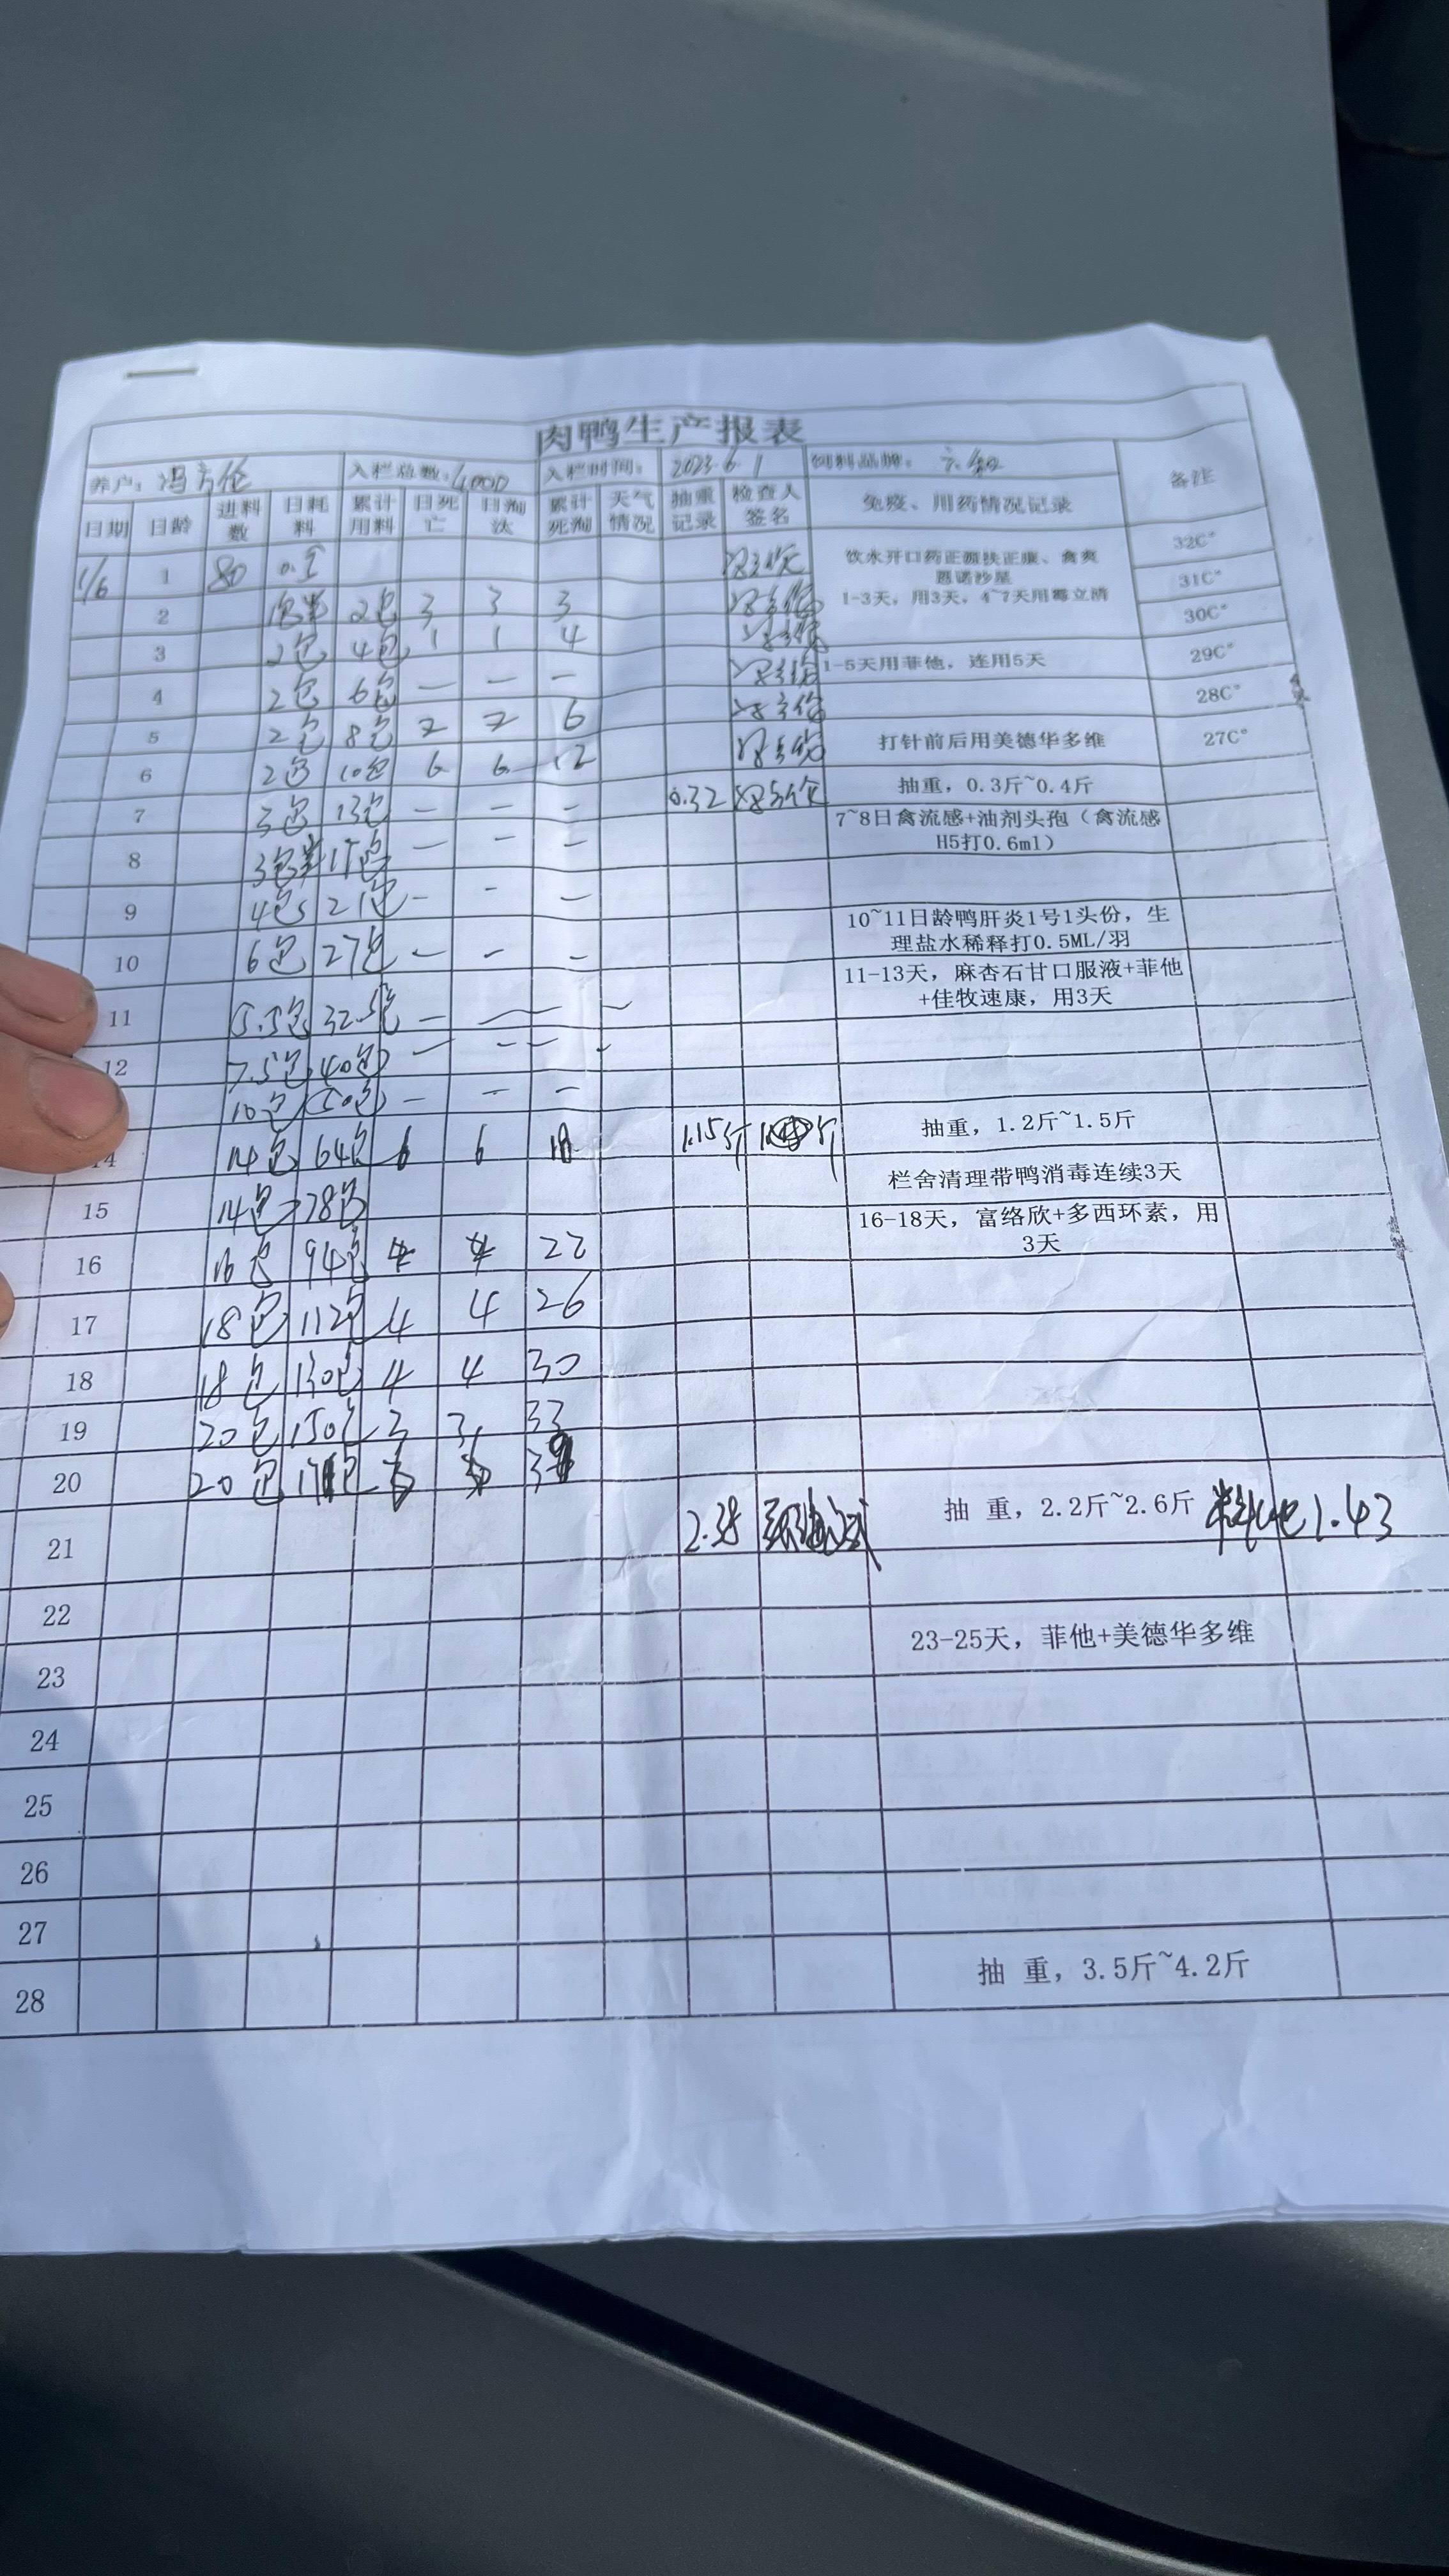 肉鸭生产报表
养户：冯方伦 入栏总数：4000 入栏时间： 2023.6.1 饲料品牌：六和 备注
日期 日龄 进料数 日耗料 累计用料 日死亡 日淘汰 累计死淘 天气情况 抽重记录 检查人签名 免疫、用药情况记录
1/6 1 80 饮水开口药正源扶正康、禽爽 32C°
恩诺沙星 31C°
2 1包半 2包 3 3 3 1-3天，用3天，4~7天用霉立清 30C°
3 2包 4包 1 1 4 1-5天用菲他，连用5天 29C°
4 2包 6包 — — — 28C°
5 2包 8包 2 2 6 打针前后用美德华多维 27C°
6 2包 10包 6 6 12
7 3包 13包 — — — 0.32 抽重，0.3斤~0.4斤
8 3包半 — — — 7~8日禽流感+油剂头孢（禽流感
H5打0.6ml）
9 4包 21包 — - —
10 6包 27包 — — — 10~11日龄鸭肝炎1号1头份，生
理盐水稀释打0.5ML/羽
11 5.5包 32.5包 — — — 11-13天，麻杏石甘口服液+菲他
+佳牧速康，用3天
12 7.5包 40包 — — —
10包 50包 — — —
14 14包 64包 6 6 18 1.15斤 抽重，1.2斤~1.5斤
15 14包 78包 栏舍清理带鸭消毒连续3天
16 16包 94包 4 4 22 16-18天，富络欣+多西环素，用
3天
17 18包 112包 4 4 26
18 18包 130包 4 4 30
19 20包 150包 3 3 33
20 20包
21 2.38 抽 重，2.2斤~2.6斤 料比1.43
22
23 23-25天，菲他+美德华多维
24
25
26
27
28 抽 重，3.5斤~4.2斤